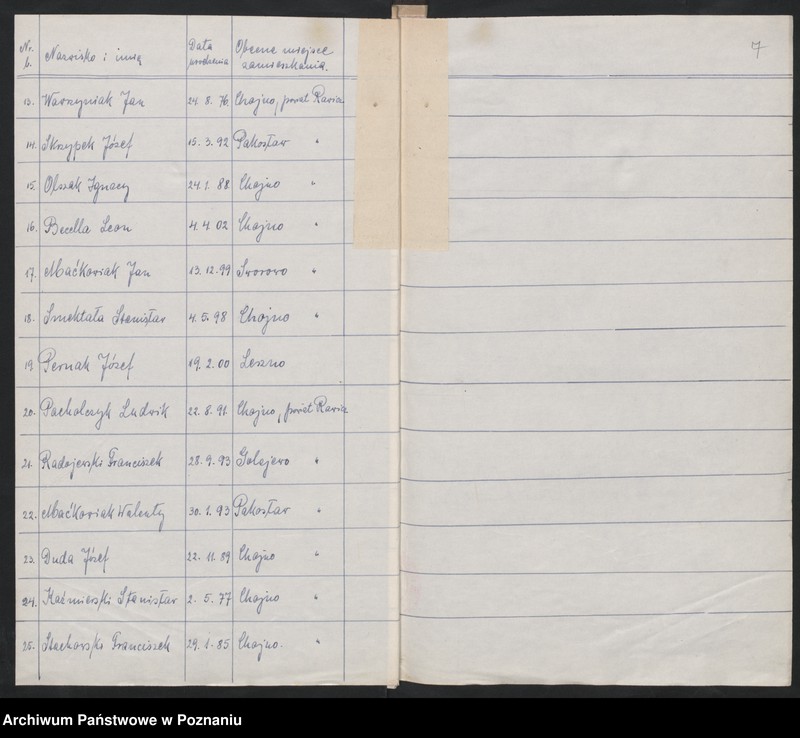 Nr. Nazwisko i imię Data Obecne miejsce
b. urodzenia zamieszkania.
7
13. Wawrzyniak Jan 24. 8. 76. Chojno, powiat Rawicz
14. Skrzypek Józef 15. 3. 92 Pakosław "
15. Olszak Ignacy 24. 1. 88 Chojno "
16. Becella Leon 4. 4. 02 Chojno "
17. Maćkowiak Jan 13. 12. 99 Sworowo "
18. Smektała Stanisław 4. 5. 98 Chojno "
19. Pernak Józef 19. 2. 00 Leszno
20. Pacholczyk Ludwik 22. 8. 91. Chojno, powiat Rawicz
21. Radojewski Franciszek 28. 9. 93 Golejewo "
22. Maćkowiak Walenty 30. 1. 93 Pakosław "
23. Duda Józef 22. 11. 89 Chojno "
24. Kaźmierski Stanisław 2. 5. 77 Chojno "
25. Stachowski Franciszek 29. 1. 85 Chojno. "
Archiwum Państwowe w Poznaniu